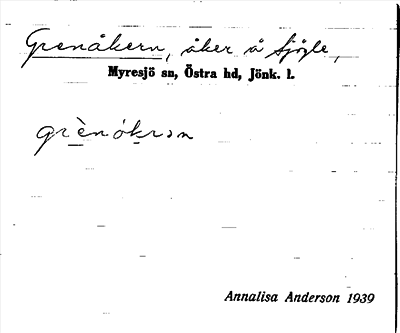 Grenåkern, åker å Sjögle,
Myresjö sn, Östra hd, Jönk. l.
grènókrən
Annalisa Anderson 1939